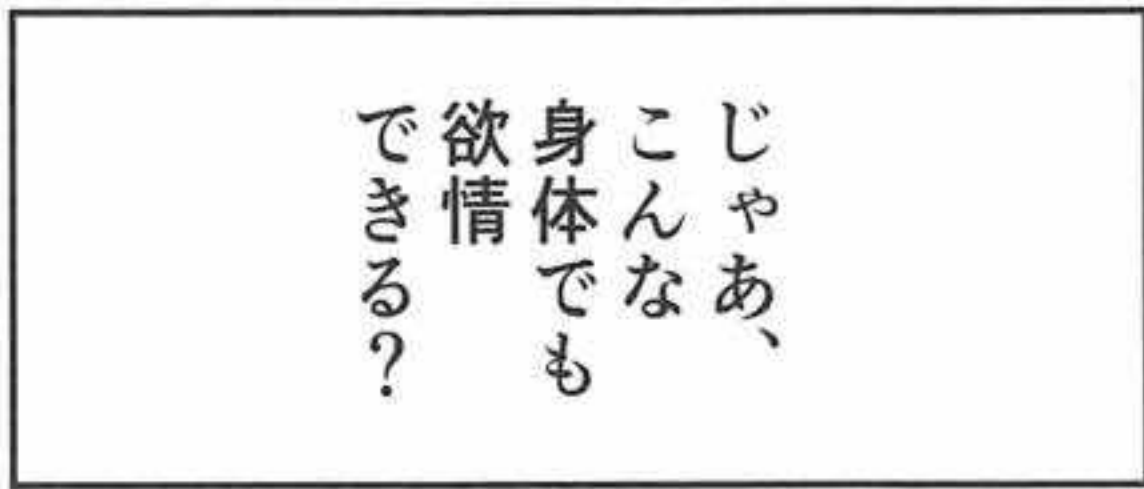 じゃあ、
こんな
身体でも
欲情
できる？